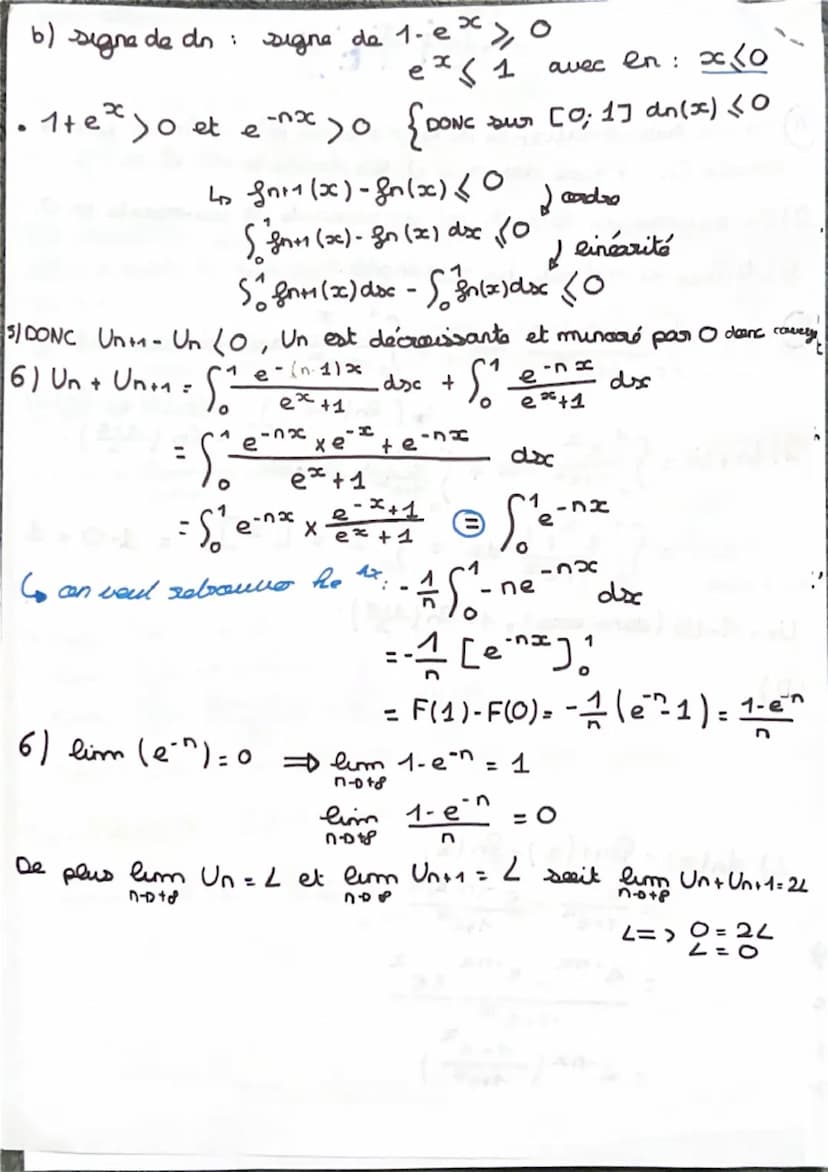 b) signe de dn : signe de 1-e^x ≥ 0
e^x ≤ 1 avec en : x≤0
• 1+e^x >0 et e^-nx >0 {DONC sur [0;1] dn(x) ≤0
↳ fn+1(x) - fn(x) ≤ 0 ) ordre
∫₀¹ fn+1(x) - fn(x) dx ≤0 ) linéarité
∫₀¹ fn+1(x)dx - ∫₀¹ fn(x)dx ≤0
5) DONC Un+1 - Un <0, Un est décroissante et minoré par 0 donc
6) Un + Un+1 = ∫₀¹ e^-(n-1)x / e^x+1 dx + ∫₀¹ e^-nx / e^x+1 dx
= ∫₀¹ e^-nx × e^-x + e^-nx / e^x+1 dx
= ∫₀¹ e^-nx × e^-x+1 / e^x+1 = ∫₀¹ e^-nx
↳ on veut retrouver le 1x : -1/n ∫₀¹ -ne^-nx dx
= -1/n [e^-nx]₀¹
= F(1)-F(0) = -1/n (e^-n-1) = 1-e^-n / n
6) lim (e^-n) = 0 ⇒ lim n→+∞ 1-e^-n = 1
lim n→+∞ 1-e^-n / n = 0
De plus lim n→+∞ Un = L et lim n→∞ Un+1 = L soit lim n→+∞ Un+Un+1=2L
<=> 0 = 2L
L = 0